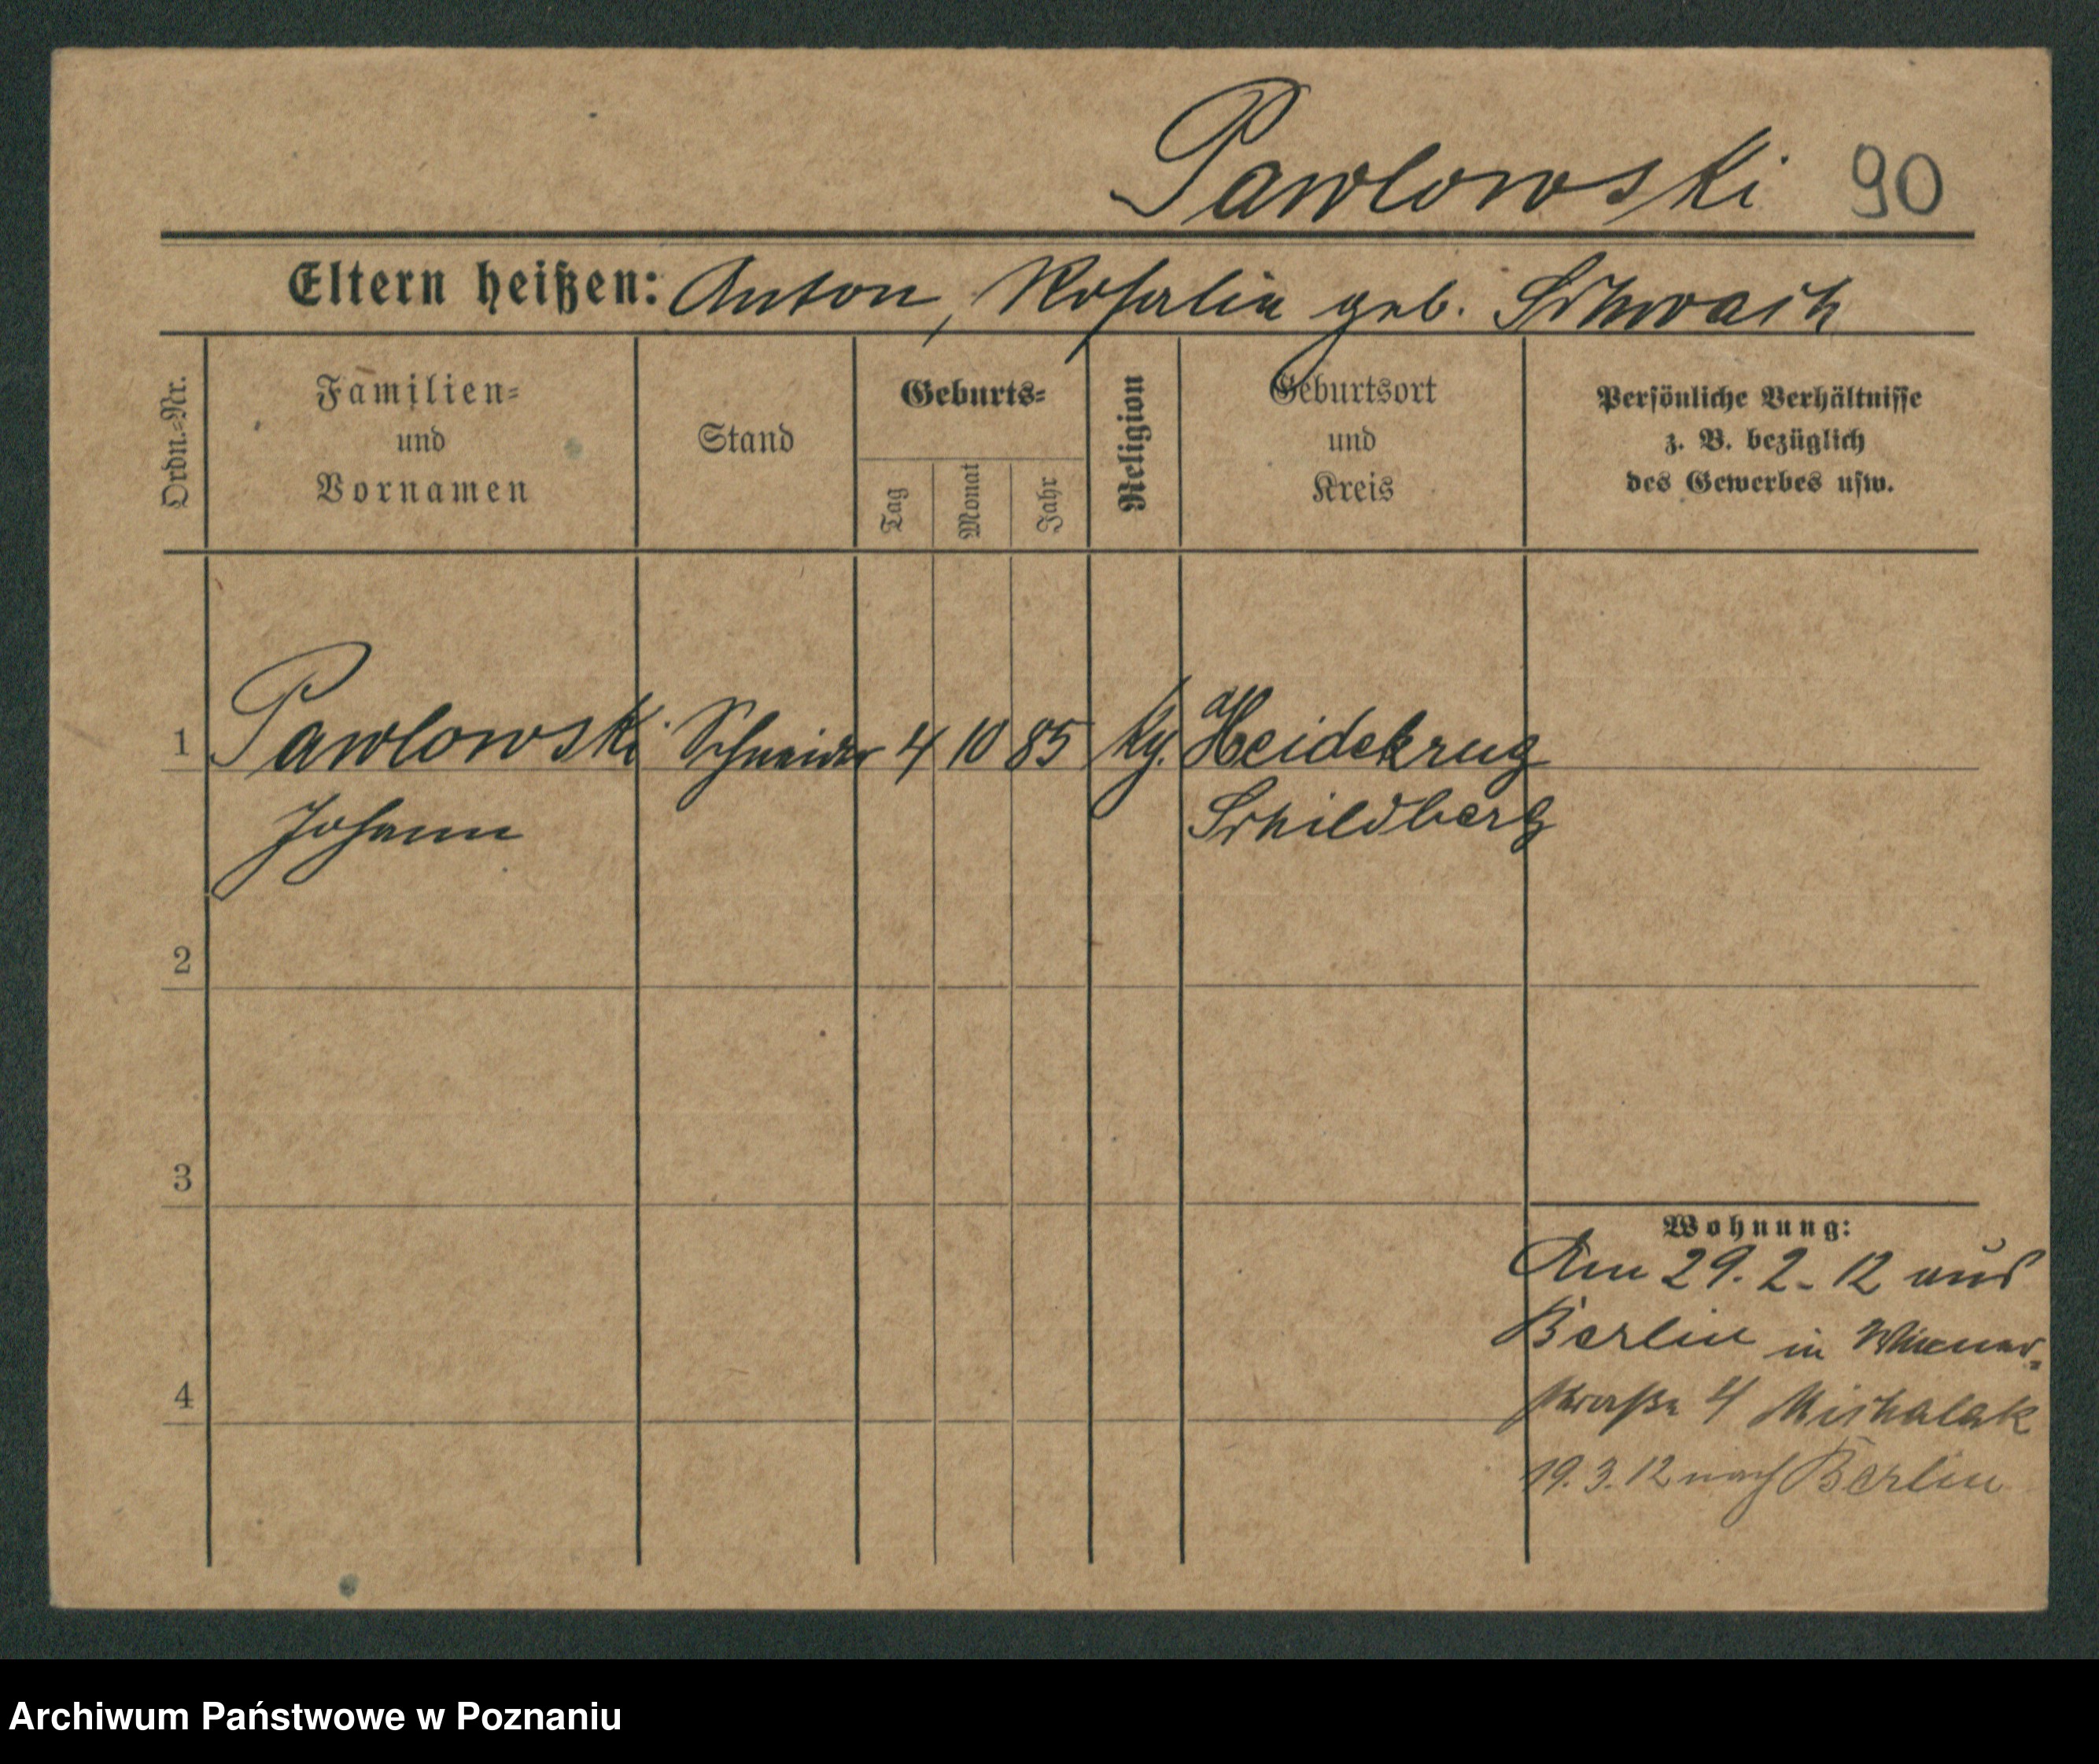 Pawlowski 90
Eltern heißen: Anton, Rosalia geb. Schwach
Ordn.-Nr.
Familien-
und
Vornamen
Stand
Geburts-
Tag
Monat
Jahr
Religion
Geburtsort
und
Kreis
Persönliche Verhältnisse
z. B. bezüglich
des Gewerbes usw.
1 Pawlowski Schneider 4 10 85 Heidekrug
Johann Schildberg
2
3
4
Wohnung:
Am 29. 2. 12 aus
Berlin in Wiener-
straße 4 Michalak
19. 3. 12 nach Berlin
Archiwum Państwowe w Poznaniu